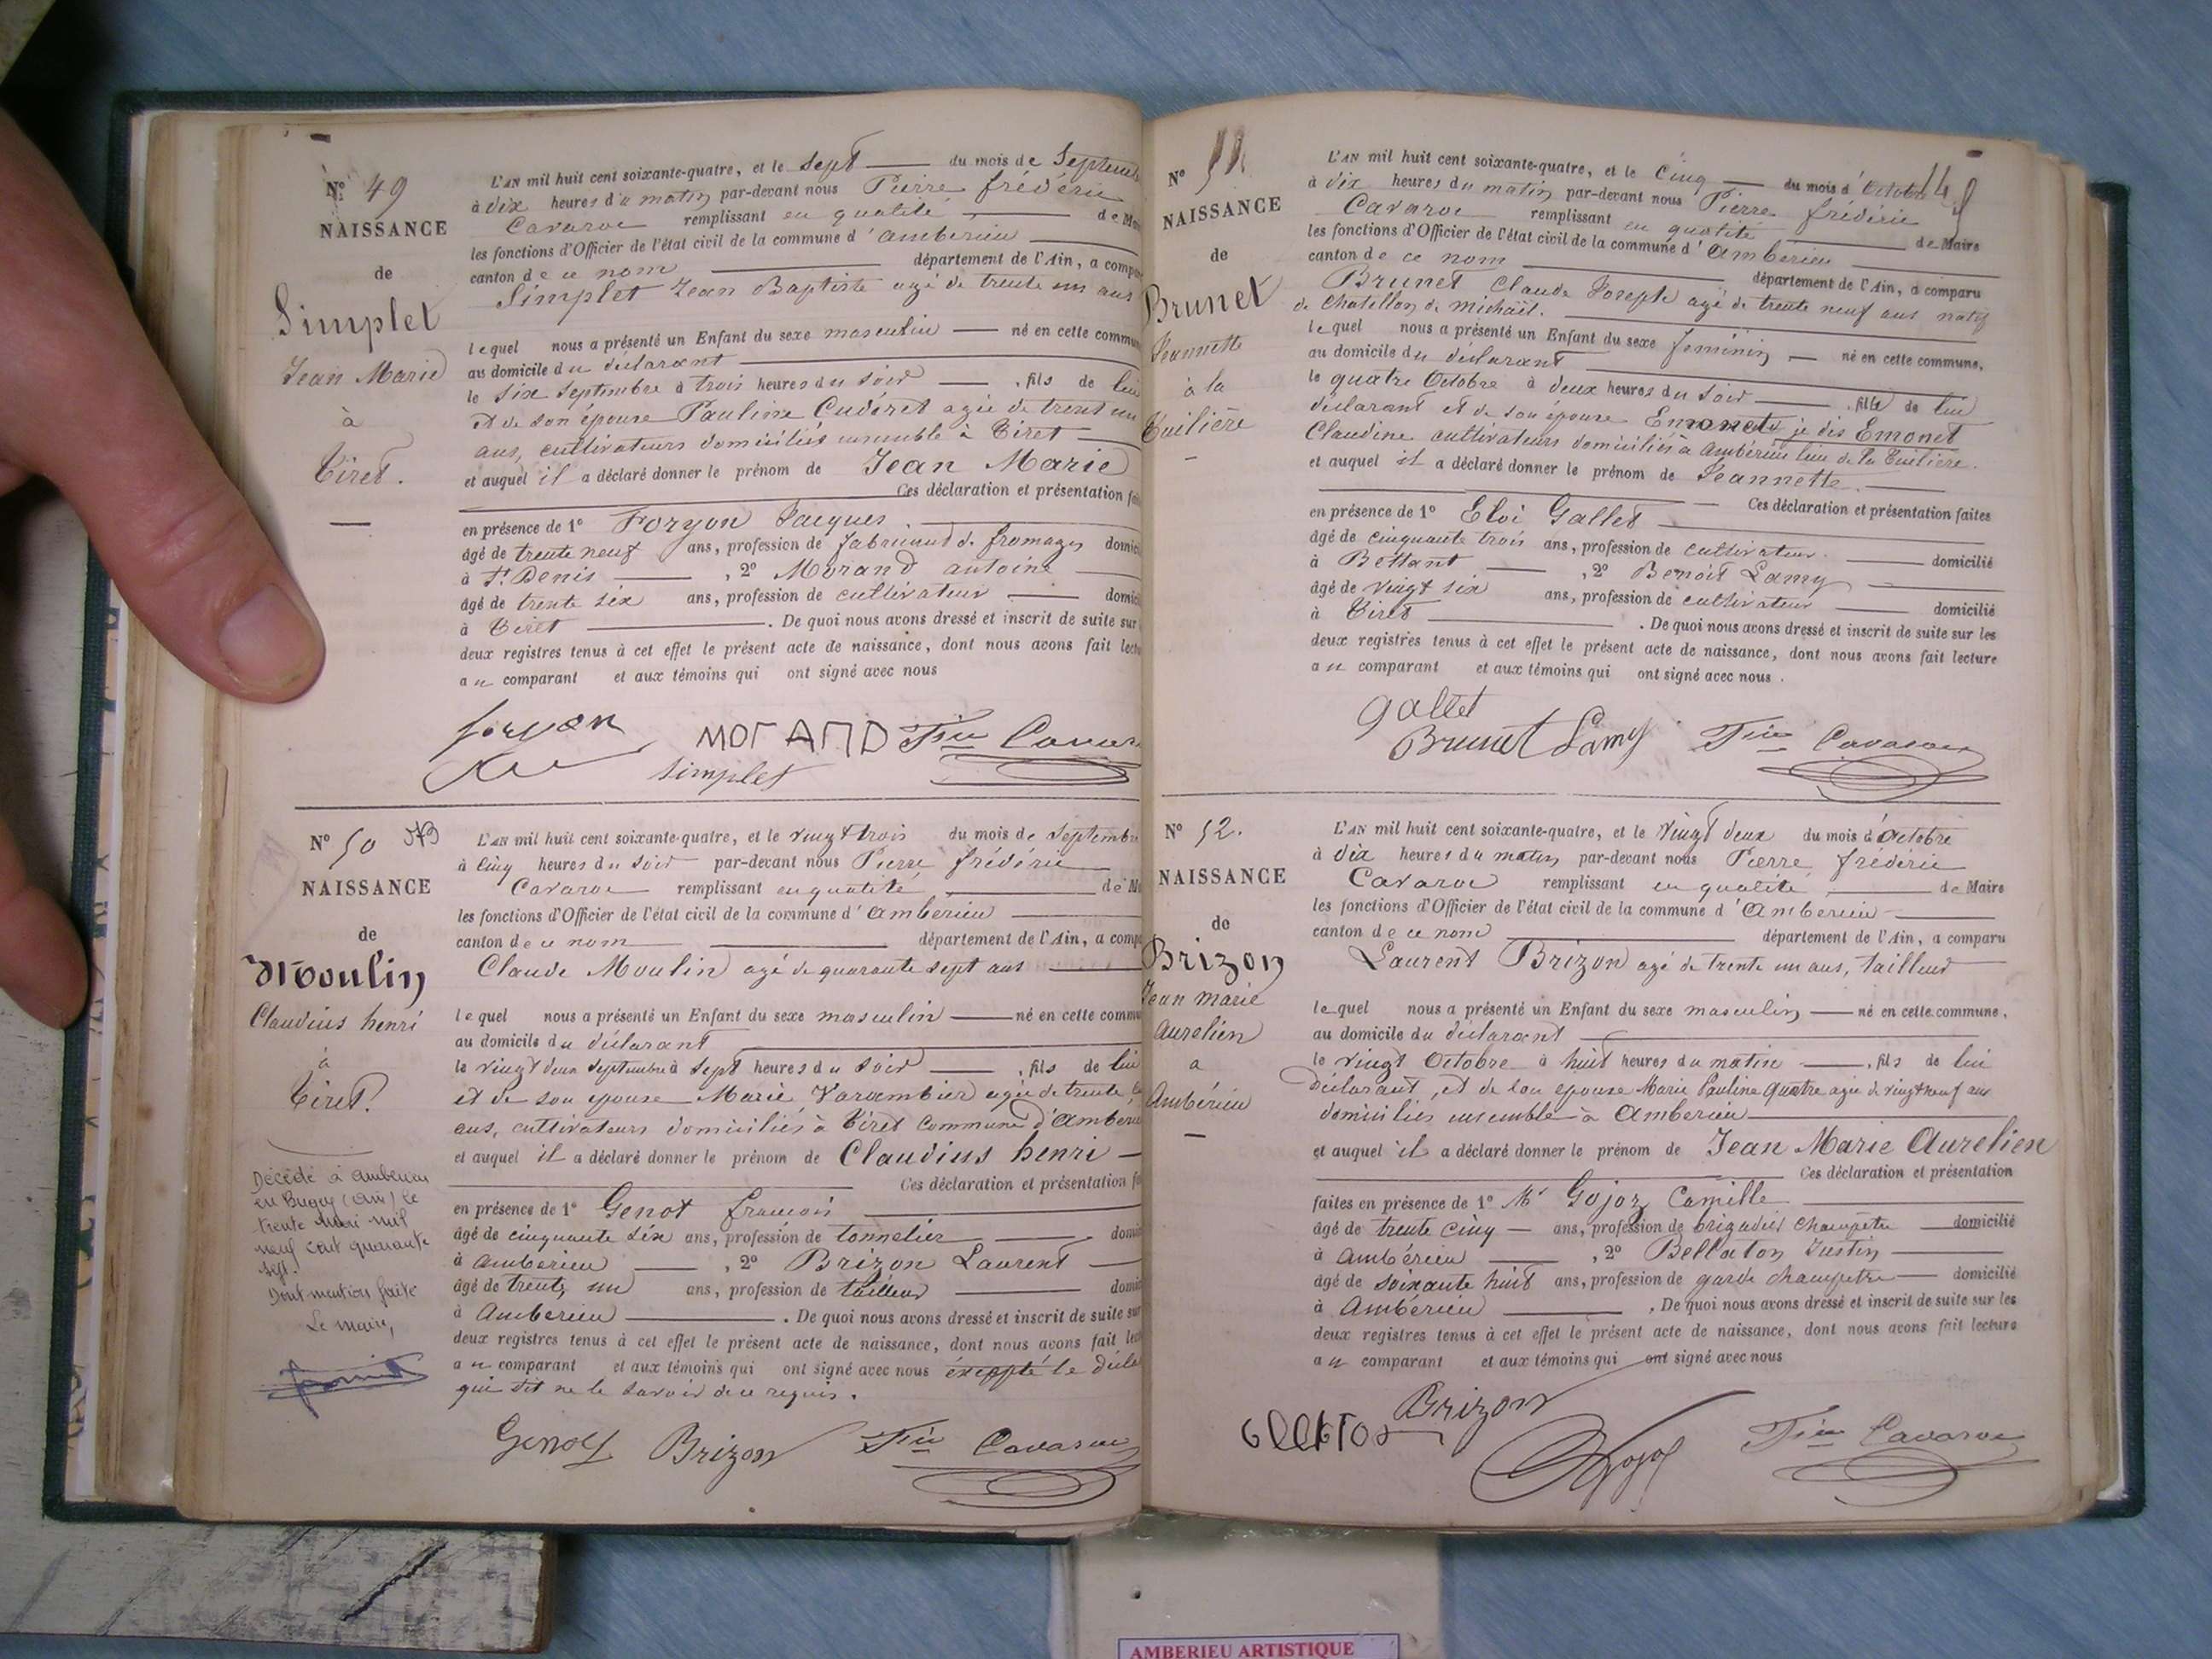 Nº 49
NAISSANCE
de
Simplet
Jean Marie
à
Tiret.
L'AN mil huit cent soixante-quatre, et le Sept du mois de Septemb
à dix heures du matin par-devant nous Pierre frédéric
Cavaroc remplissant en qualité de Ma
les fonctions d'Officier de l'état civil de la commune d'amberieu
canton de ce nom département de l'Ain, a compa
Simplet Jean Baptiste agé de trente un ans
lequel nous a présenté un Enfant du sexe masculin né en cette commun
au domicile du déclarant
le six Septembre à trois heures du soir, fils de lui
et de son épouse Pauline agée de trent un
ans, cultivateurs domiciliés ensemble à Tiret
et auquel il a déclaré donner le prénom de Jean Marie
Ces déclaration et présentation fai
en présence de 1º Foryon Jacques
âgé de trente neuf ans, profession de fabricant de fromages domici
à St Denis, 2º Morand antoine
âgé de trente six ans, profession de cultivateur domici
à Tiret. De quoi nous avons dressé et inscrit de suite sur
deux registres tenus à cet effet le présent acte de naissance, dont nous avons fait lectu
au comparant et aux témoins qui ont signé avec nous
foryon
MOrAND
simplet
Cavaroc
Nº 50
NAISSANCE
de
Moulin
Claudius henri
à
Tiret.
Décédé à Amberieu
en Bugey (Ain) le
trente mil
neuf cent quarante
sept.
Dont mention faite
Le maire,
L'AN mil huit cent soixante-quatre, et le vingt trois du mois de Septembre
à cinq heures du soir par-devant nous Pierre frédéric
Cavaroc remplissant en qualité de Ma
les fonctions d'Officier de l'état civil de la commune d'amberieu
canton de ce nom département de l'Ain, a compa
Claude Moulin agé de quarante sept ans
lequel nous a présenté un Enfant du sexe masculin né en cette commu
au domicile du déclarant
le vingt deux Septembre à Sept heures du soir, fils de lui
et de son epouse Marie Varambier agée de trente
ans, cultivateurs domiciliés à Tiret Commune d'Amberieu
et auquel il a déclaré donner le prénom de Claudius henri
Ces déclaration et présentation fa
en présence de 1º Genot francois
âgé de cinquante six ans, profession de tonnelier domi
à amberieu, 2º Brizon Laurent
âgé de trente un ans, profession de tailleur domi
à Amberieu. De quoi nous avons dressé et inscrit de suite sur
deux registres tenus à cet effet le présent acte de naissance, dont nous avons fait lect
au comparant et aux témoins qui ont signé avec nous excepté le décla
qui dit ne le savoir de ce requis.
Genot
Brizon
Cavaroc
Nº 51
NAISSANCE
de
Brunet
Jeannette
à la
Tuilière
L'AN mil huit cent soixante-quatre, et le cinq du mois d'Octobre
à dix heures du matin par-devant nous Pierre frédéric
Cavaroc remplissant en qualité de Maire
les fonctions d'Officier de l'état civil de la commune d'Amberieu
canton de ce nom département de l'Ain, a comparu
Brunet Claude Joseph agé de trente neuf ans natif
de Chatillon de michaïl.
lequel nous a présenté un Enfant du sexe feminin né en cette commune,
au domicile du déclarant
le quatre Octobre à deux heures du soir, fille de lui
déclarant et de son épouse Emonet je dis Emonet
Claudine cultivateurs domiciliés à Ambérieu lieu de la Tuilière.
et auquel il a déclaré donner le prénom de Jeannette.
Ces déclaration et présentation faites
en présence de 1º Eloi Gallet
âgé de cinquante trois ans, profession de cultivateur domicilié
à Bettant, 2º Benoit Lamy
âgé de vingt six ans, profession de cultivateur domicilié
à Tiret. De quoi nous avons dressé et inscrit de suite sur les
deux registres tenus à cet effet le présent acte de naissance, dont nous avons fait lecture
au comparant et aux témoins qui ont signé avec nous.
gallet
Brunet Lamy
Cavaroc
Nº 52.
NAISSANCE
de
Brizon
Jean marie
Aurelien
a
Ambérieu
L'AN mil huit cent soixante-quatre, et le vingt deux du mois d'Octobre
à dix heures du matin par-devant nous Pierre frédéric
Cavaroc remplissant en qualité de Maire
les fonctions d'Officier de l'état civil de la commune d'Amberieu
canton de ce nom département de l'Ain, a comparu
Laurent Brizon agé de trente un ans, tailleur
lequel nous a présenté un Enfant du sexe masculin né en cette commune,
au domicile du déclarant
le vingt Octobre à huit heures du matin, fils de lui
déclarant, et de son epouse Marie Pauline Quatre agée de vingt neuf ans
domiciliés ensemble à Amberieu
et auquel il a déclaré donner le prénom de Jean Marie Aurelien
Ces déclaration et présentation
faites en présence de 1º Mr Gojoz Camille
âgé de trente cinq ans, profession de brigadier champetre domicilié
à Ambérieu, 2º Bellaton Justin
âgé de soixante huit ans, profession de garde champetre domicilié
à Ambérieu. De quoi nous avons dressé et inscrit de suite sur les
deux registres tenus à cet effet le présent acte de naissance, dont nous avons fait lecture
au comparant et aux témoins qui ont signé avec nous
Brizon
Cavaroc
AMBERIEU ARTISTIQUE